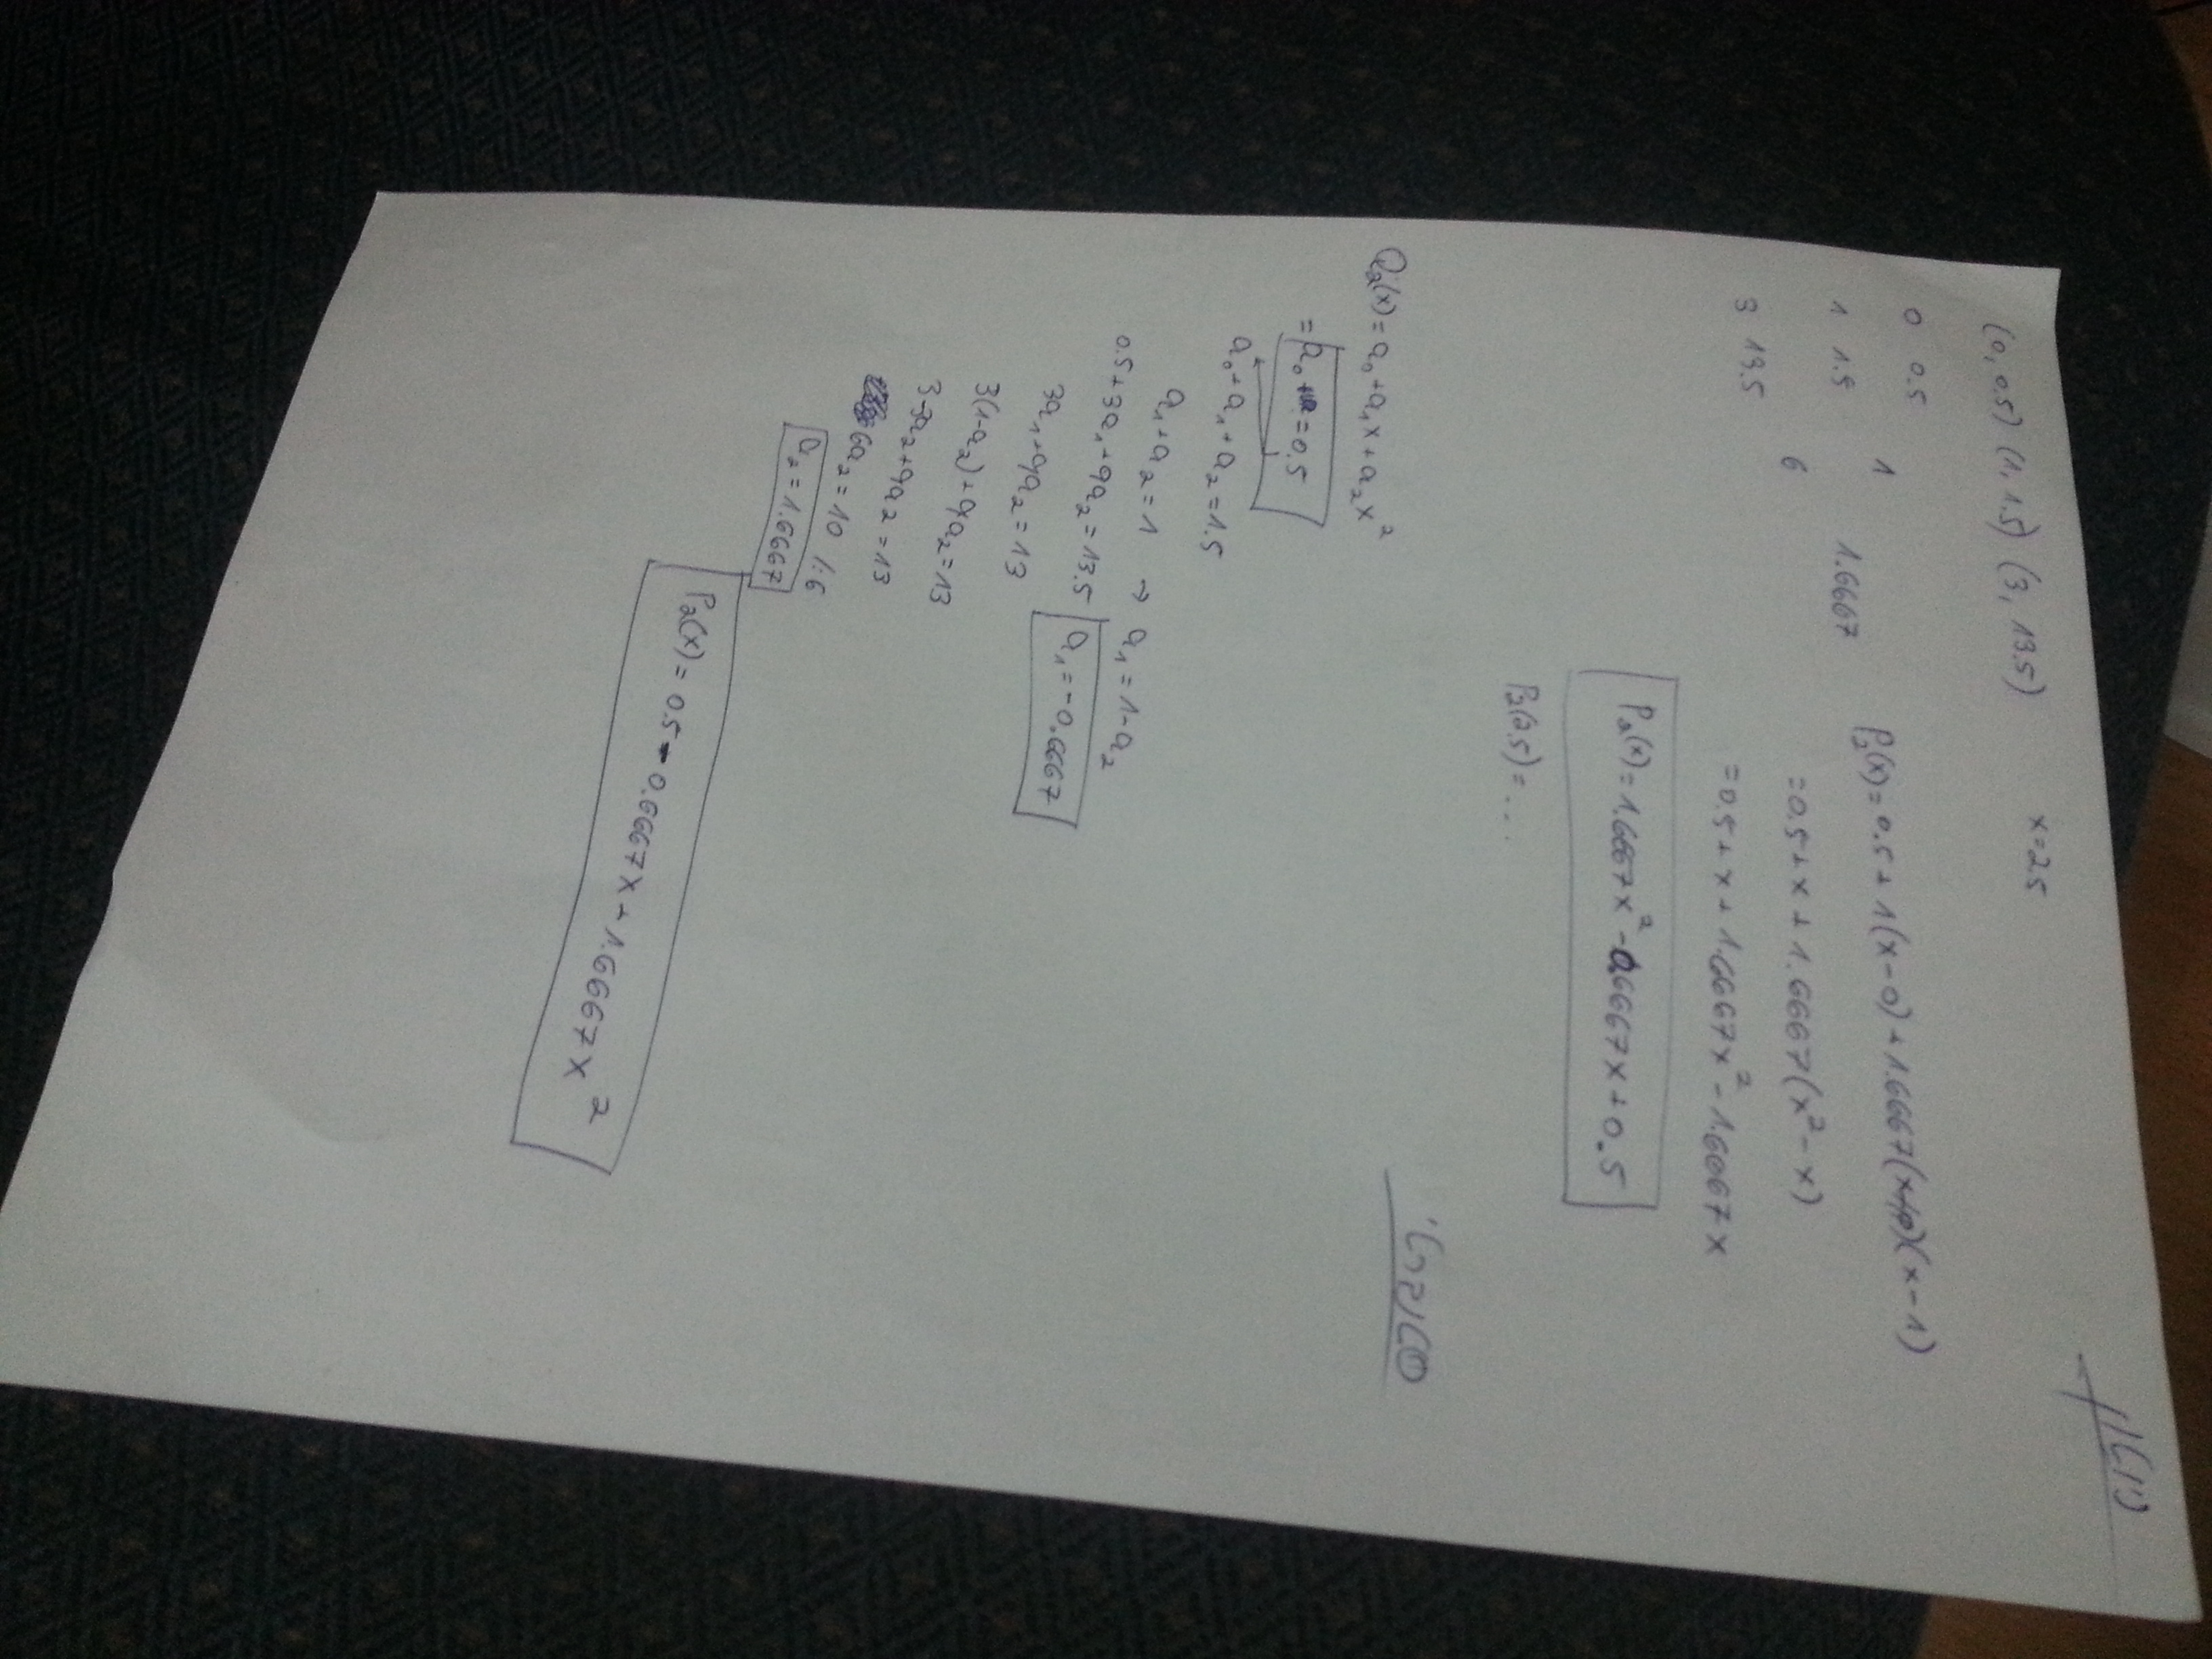 (0, 0.5) (1, 1.5) (3, 13.5) x=2.5
0 0.5
1
1 1.5 1.6667
6
3 13.5
P₂(x) = 0.5 + 1(x-0) + 1.6667(x-0)(x-1)
= 0.5 + x + 1.6667(x²-x)
= 0.5 + x + 1.6667x² - 1.6667x
P₂(x) = 1.6667x² - 0.6667x + 0.5
P₂(2.5) = ...
Q₂(x) = a₀ + a₁x + a₂x²
= a₀ = 0.5
a₀ + a₁ + a₂ = 1.5
a₁ + a₂ = 1 → a₁ = 1 - a₂
0.5 + 3a₁ + 9a₂ = 13.5 a₁ = -0.6667
3a₁ + 9a₂ = 13
3(1-a₂) + 9a₂ = 13
3-3a₂ + 9a₂ = 13
6a₂ = 10 /:6
a₂ = 1.6667
P₂(x) = 0.5 - 0.6667x + 1.6667x²